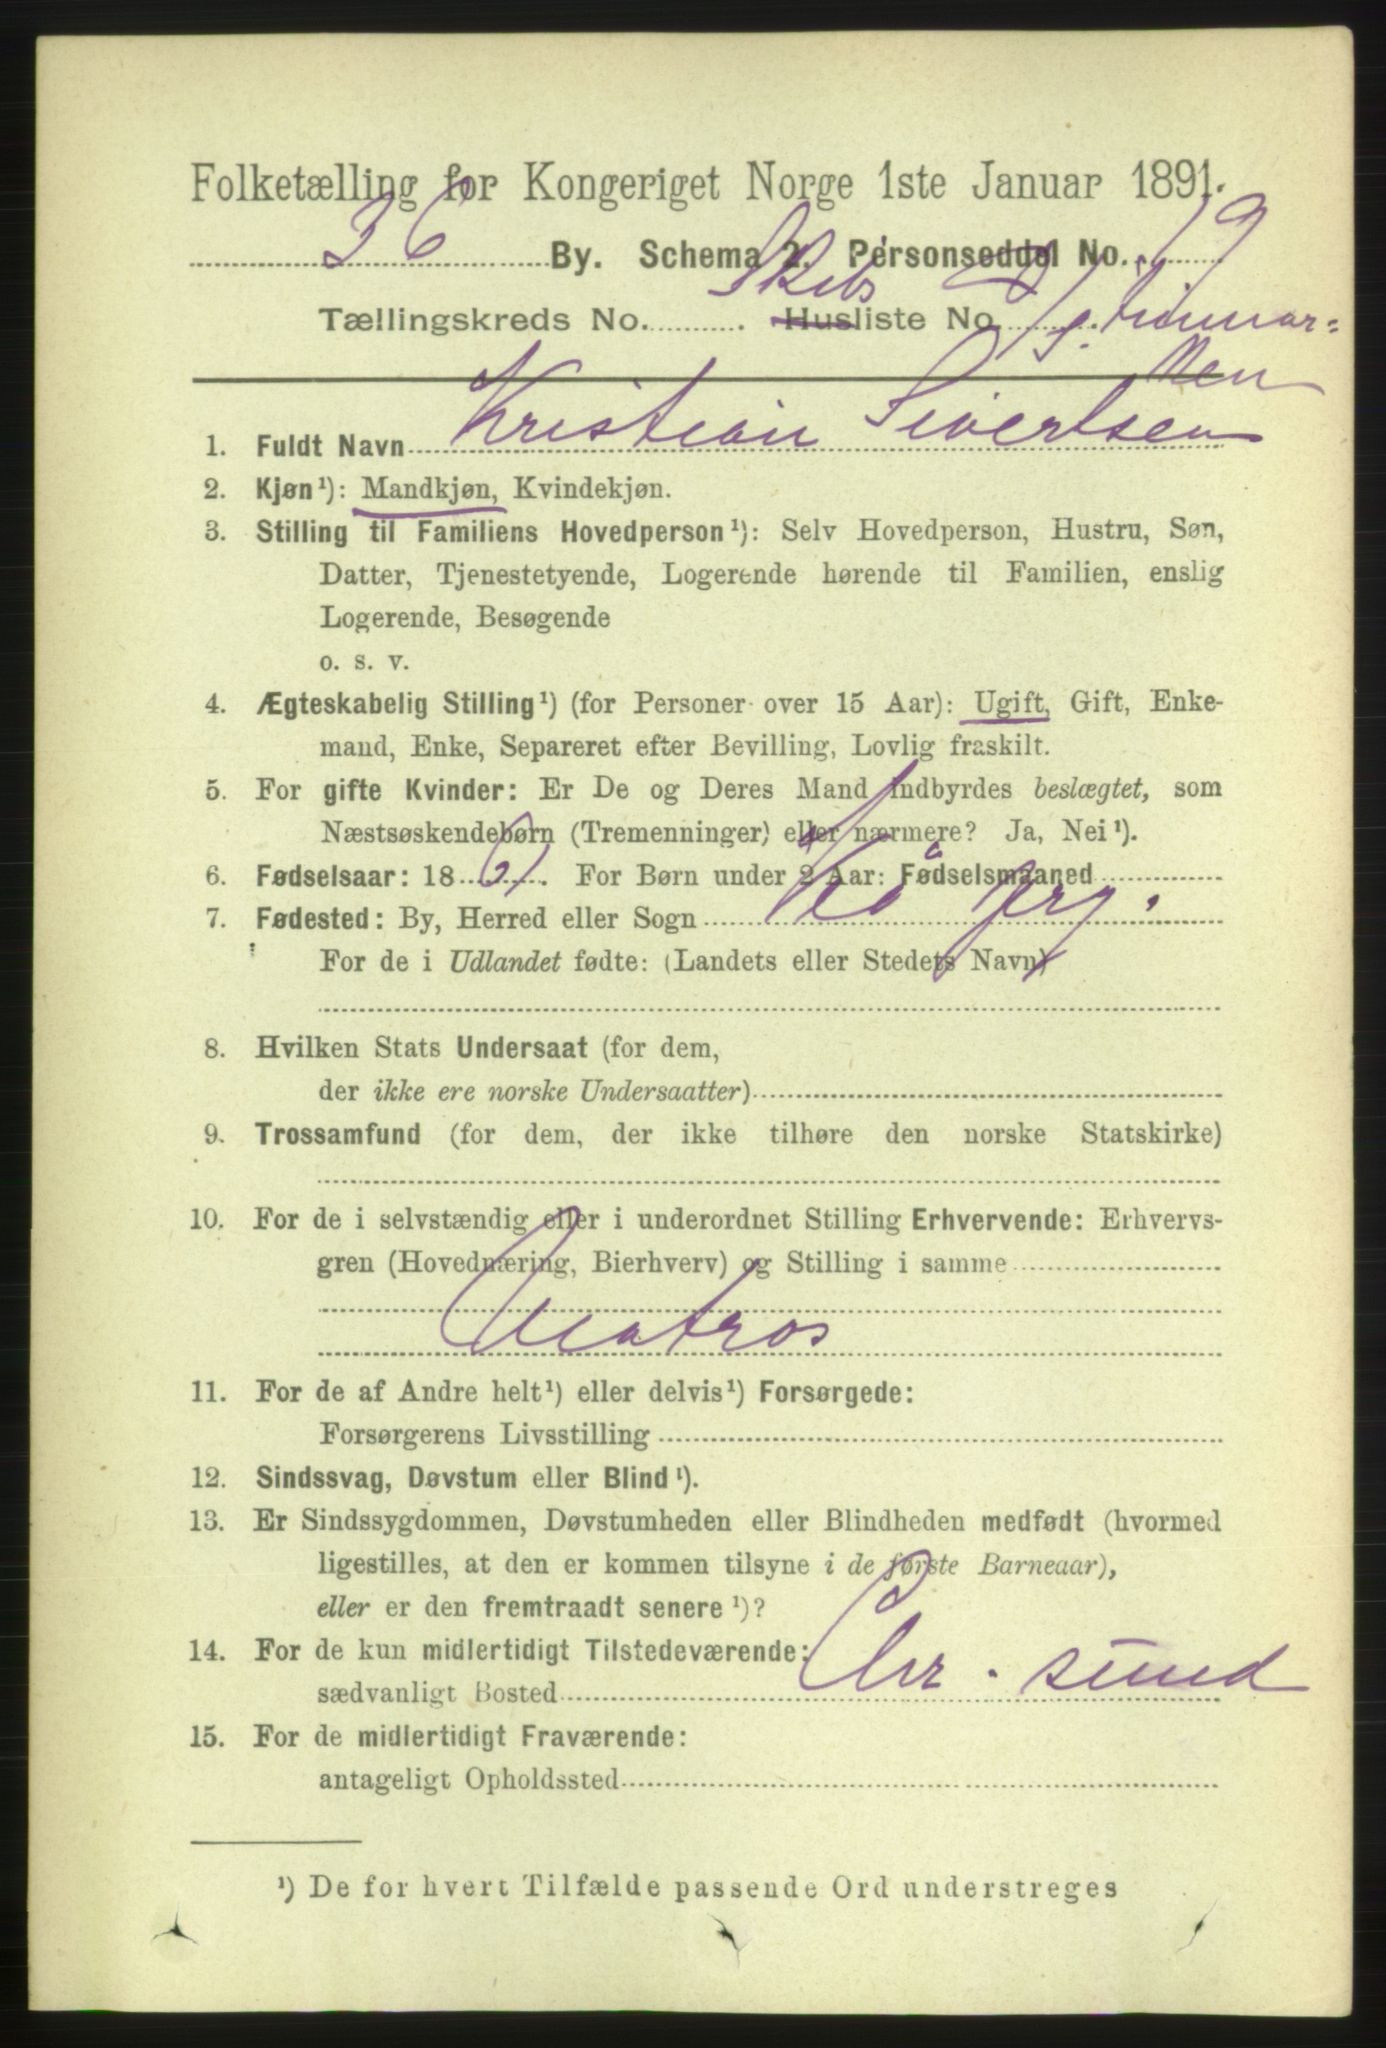 Folketælling for Kongeriget Norge 1ste Januar 1891.
36 By. Schema 2. Personseddel No. 19
Tællingskreds No. Husliste No. Skibs
Kristian Sivertsen
1. Fuldt Navn
2. Kjøn¹): Mandkjøn, Kvindekjøn.
3. Stilling til Familiens Hovedperson¹): Selv Hovedperson, Hustru, Søn,
Datter, Tjenestetyende, Logerende hørende til Familien, enslig
Logerende, Besøgende
o. s. v.
4. Ægteskabelig Stilling¹) (for Personer over 15 Aar): Ugift, Gift, Enke-
mand, Enke, Separeret efter Bevilling, Lovlig fraskilt.
5. For gifte Kvinder: Er De og Deres Mand indbyrdes beslægtet, som
Næstsøskendebørn (Tremenninger) eller nærmere? Ja, Nei¹).
6. Fødselsaar: 18 . For Børn under 2 Aar: Fødselsmaaned
7. Fødested: By, Herred eller Sogn
For de i Udlandet fødte: (Landets eller Stedets Navn)
8. Hvilken Stats Undersaat (for dem,
der ikke ere norske Undersaatter)
9. Trossamfund (for dem, der ikke tilhøre den norske Statskirke)
10. For de i selvstændig eller i underordnet Stilling Erhvervende: Erhvervs-
gren (Hovednæring, Bierhverv) og Stilling i samme
Matros
11. For de af Andre helt¹) eller delvis¹) Forsørgede:
Forsørgerens Livsstilling
12. Sindssvag, Døvstum eller Blind¹).
13. Er Sindssygdommen, Døvstumheden eller Blindheden medfødt (hvormed
ligestilles, at den er kommen tilsyne i de første Barneaar),
eller er den fremtraadt senere¹)?
14. For de kun midlertidigt Tilstedeværende:
sædvanligt Bosted Chr. sund
15. For de midlertidigt Fraværende:
antageligt Opholdssted
¹) De for hvert Tilfælde passende Ord understreges